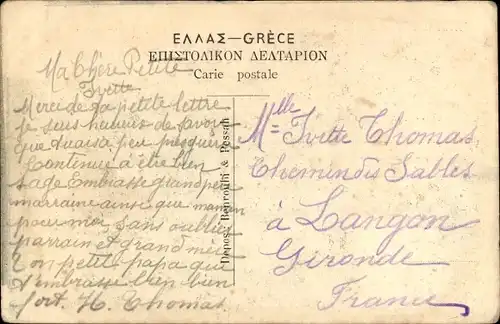 ΕΛΛΑΣ—GRÈCE
ΕΠΙΣΤΟΛΙΚΟΝ ΔΕΛΤΑΡΙΟΝ
Carte postale
Ma Chère Petite
Yvette
Merci de ta petite lettre
je suis heureux de savoir
que tu as
Continue à être bien
sage Embrasse grand père
marraine ainsi que maman
pour moi, sans oublier
parrain et grand mère
Ton petit papa que
t'embrasse bien bien
fort. H. Thomas.
Benroubi & Pessah
Mlle Yvette Thomas
Chemin des Sables
à Langon
Gironde
France